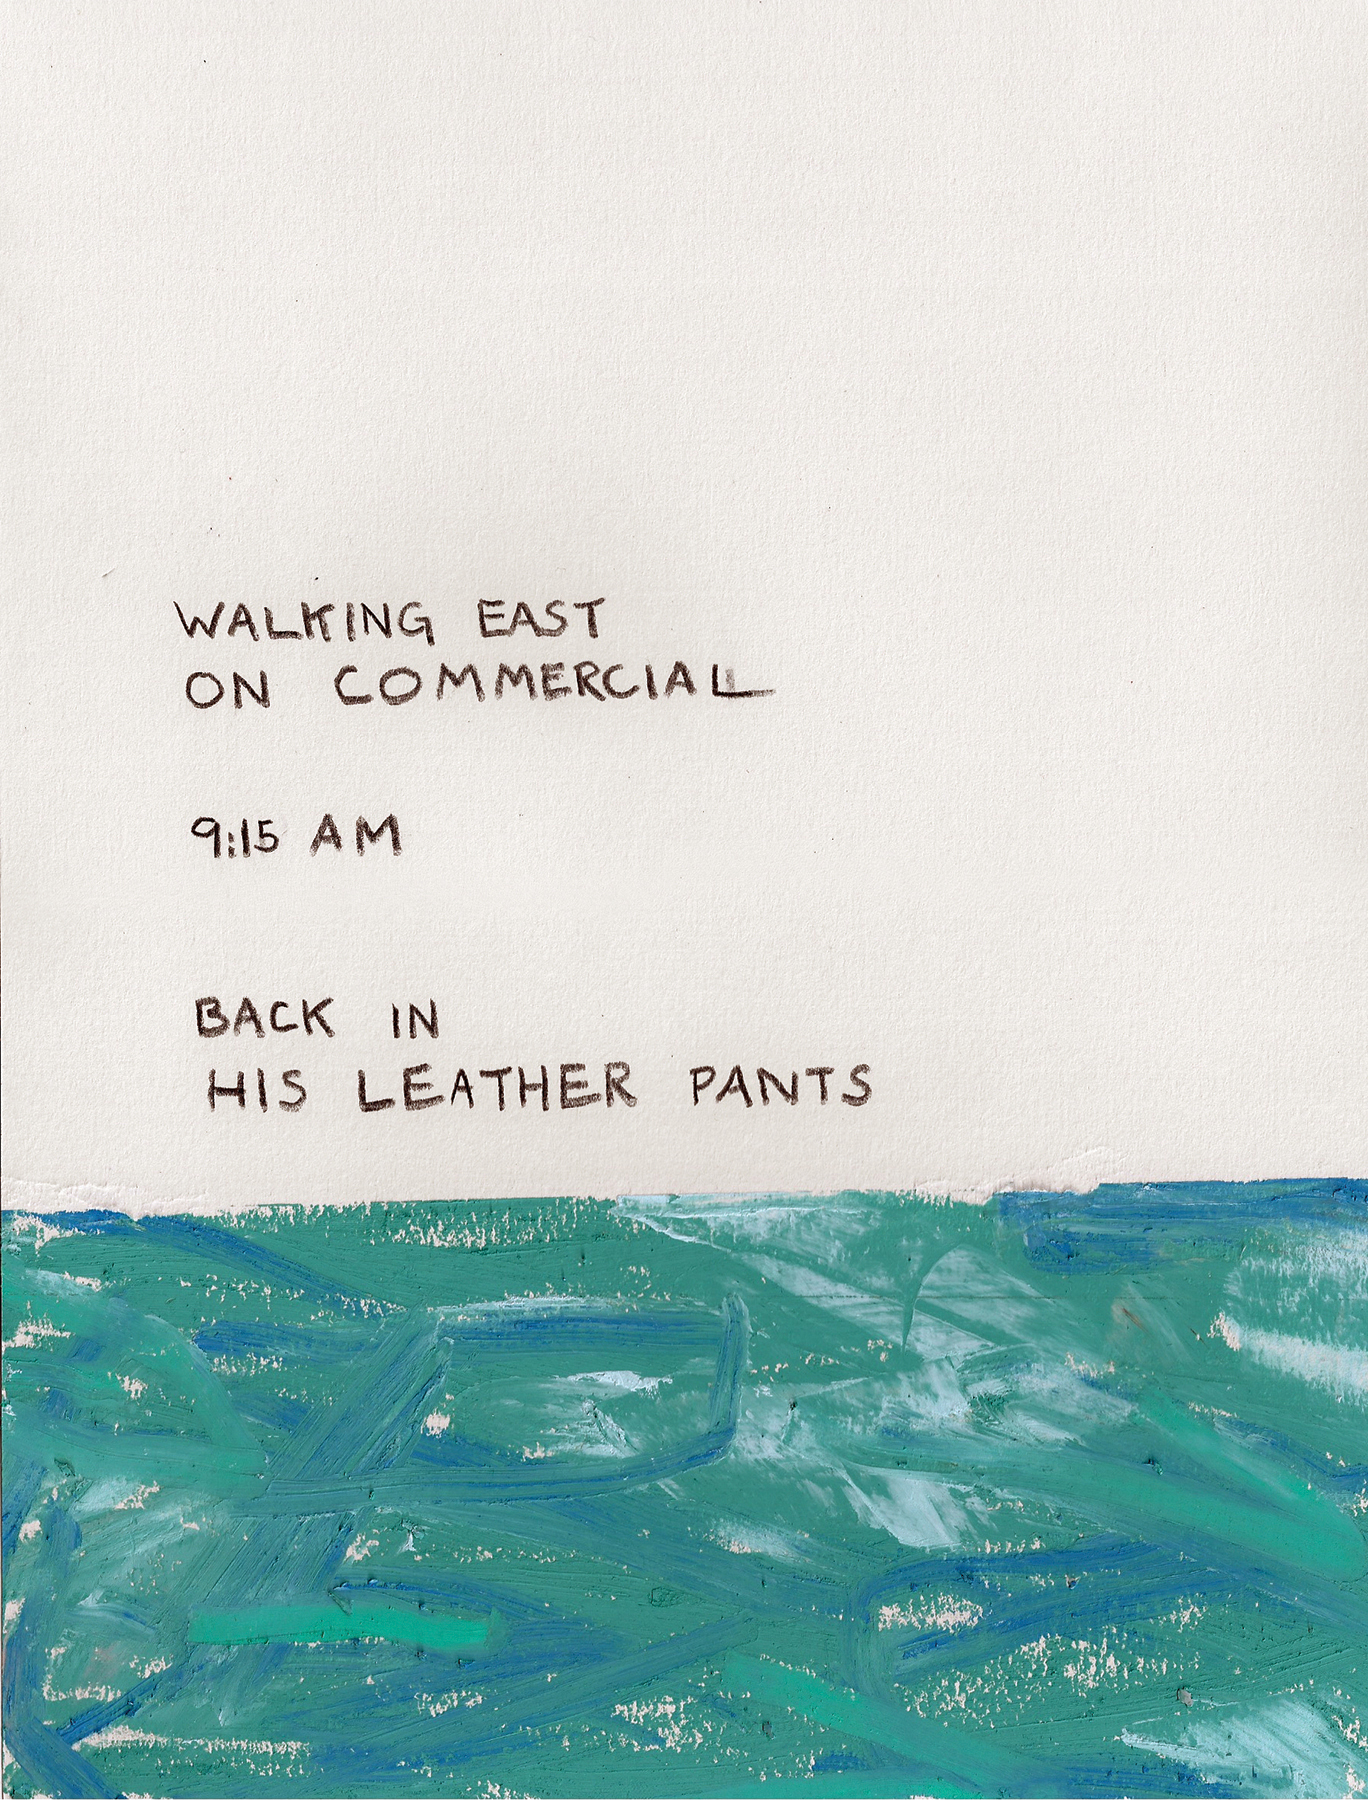 WALKING EAST
ON COMMERCIAL
9:15 AM
BACK IN
HIS LEATHER PANTS